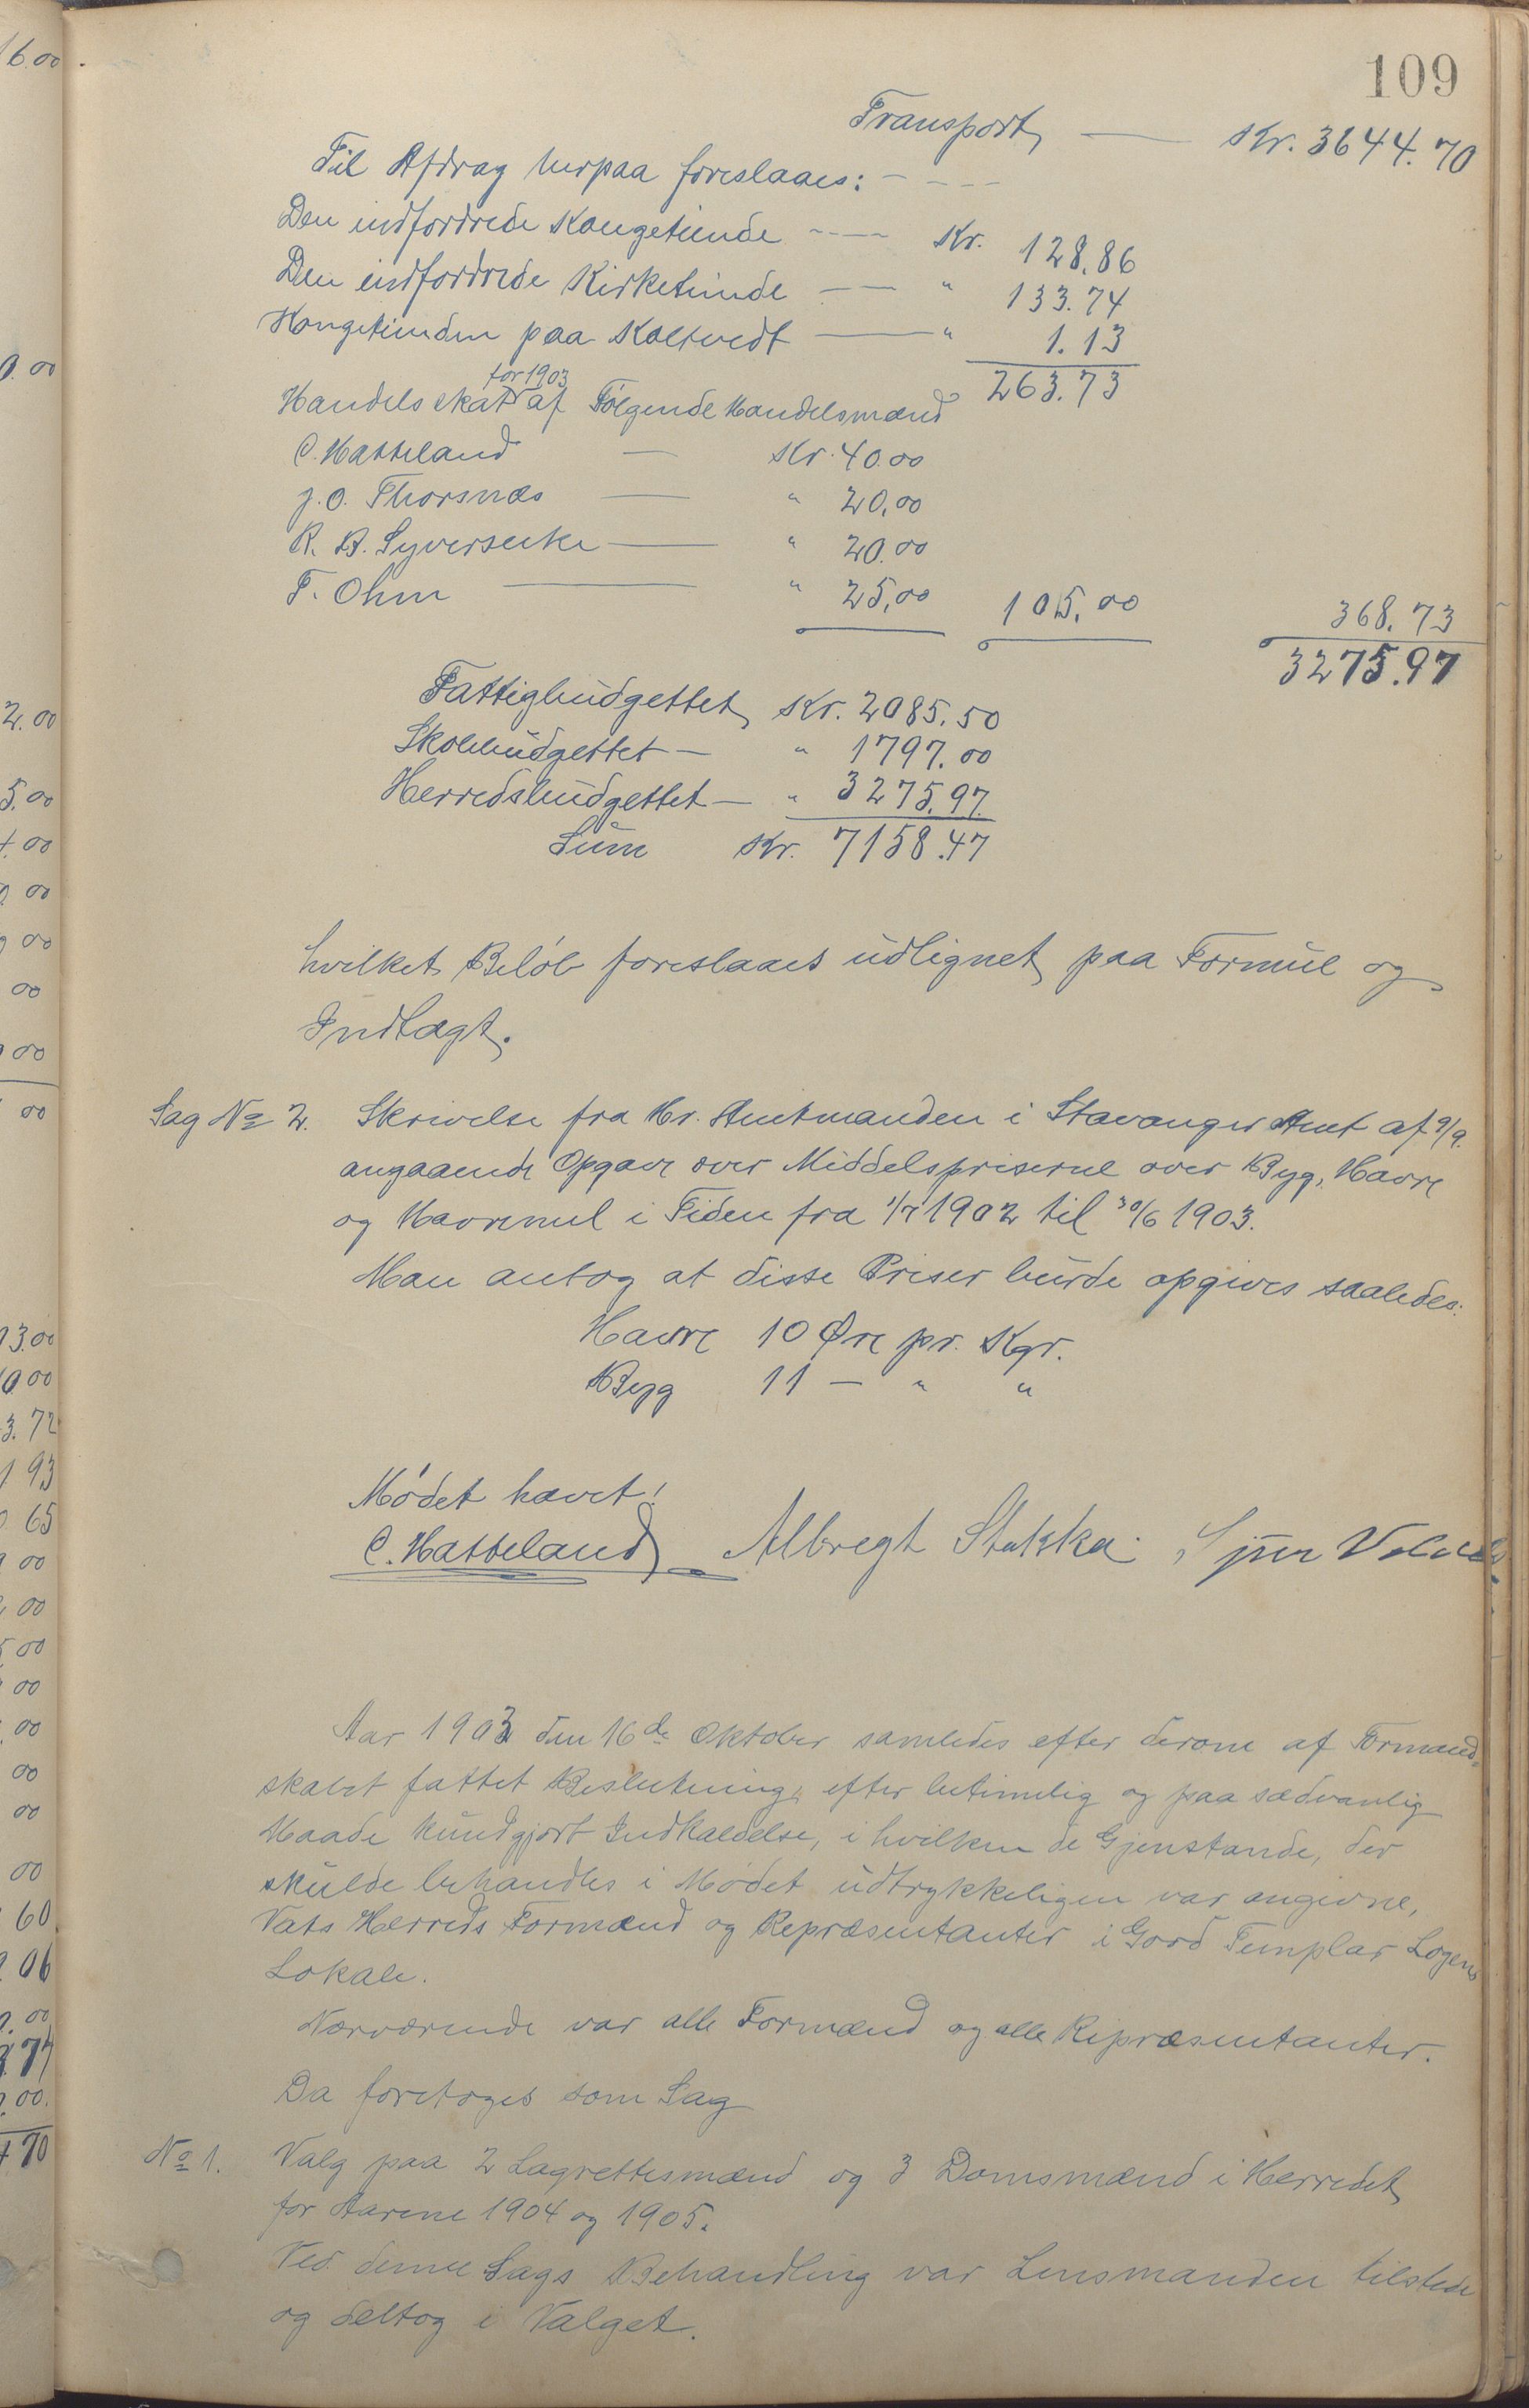 109
Transport — Kr. 3644.70
Til Afdrag herpaa foreslaaes:
Den indfordrede Kongetiende — Kr. 128.86
Den indfordrede Kirketiende — " 133.74
Kongetienden paa Koltvedt — " 1.13
263.73
for 1903
Handelsskat af Følgende Handelsmænd
C. Hatteland — Kr. 40.00
J. O. Thorsnæs — " 20,00
R. B. — " 20.00
T. Ohm — " 25,00 105.00 368.73
3275.97
Fattigbudgettet Kr. 2085.50
Skolebudgettet — " 1797.00
Herredsbudgettet — " 3275.97.
Sum Kr. 7158.47
hvilket Beløb foreslaaes udlignet paa Formue og
Indtægt.
Sag No 2. Skrivelse fra Hr. Amtmanden i Stavanger Amt af 9/9.
angaaende Opgave over Middelspriserne over Byg, Havre
og Havremel i Tiden fra 1/7 1902 til 30/6 1903.
Man antog at disse Priser burde opgives saaledes:
Havre 10 Øre pr. Kgr.
Byg 11 — " "
Mødet hævet!
C. Hatteland Albregt Stakka. Sjur
Aar 1903 den 16de Oktober samledes efter derom af Formand-
skabet fattet Beslutning, efter betimelig og paa sædvanlig
Maade kundgjort Indkaldelse, i hvilken de Gjenstande, der
skulde behandles i Mødet udtrykkeligen var angivne,
Vats Herreds Formænd og Repræsentanter i Good Templar Logens
Lokale.
Nærværende var alle Formænd og alle Repræsentanter.
Da foretoges som Sag
No 1. Valg paa 2 Lagrettesmænd og 3 Domsmænd i Herredet
for Aarene 1904 og 1905.
Ved denne Sags Behandling var Lensmanden tilstede
og deltog i Valget.